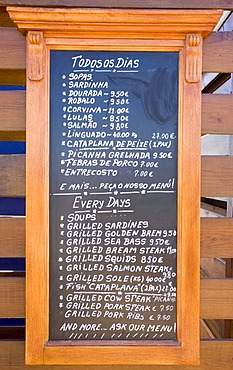 TODOS OS DIAS
* SOPAS
* SARDINHA
* DOURADA ~ 9.50€
* ROBALO ~ 9.50€
* CORVINA ~
* LULAS ~ 8.50€
* SALMÃO ~
* LINGUADO ~ 40.00
* CATAPLANA DE PEIXE (2 PAX)
* PICANHA GRELHADA 9.50€
* FEBRAS DE PORCO 7.00€
* ENTRECOSTO 7.50€
E MAIS... PEÇA O NOSSO MENU!
EVERY DAYS
* SOUPS
* GRILLED SARDINES
* GRILLED GOLDEN BREM 9.50
* GRILLED SEA BASS 9.50
* GRILLED BREAM STEAK
* GRILLED SQUIDS 8.50€
* GRILLED SALMON STEAK
* GRILLED SOLE (KG) 40.00
* FISH "CATAPLANA" (2 PAX)
* GRILLED COW STEAK "PICANHA"
* GRILLED PORK STEAK
* GRILLED PORK RIBS 7.50
AND MORE... ASK OUR MENU!